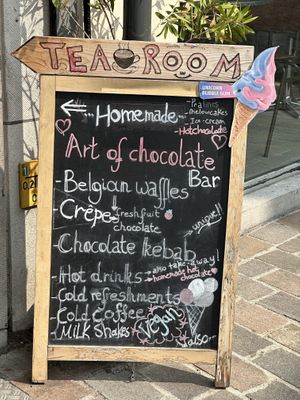 TEA ROOM
UNICORN
BUBBLE GUM
...Homemade...
- Pralines
- Ice-cream
- Hotchocolate
Art of chocolate
Bar
- Belgian waffles
- Crêpe
fresh fruit
chocolate
unique!!
- Chocolate kebab
also take-away!
- Hot drinks
homemade hot chocolate
- Cold refreshments
- Cold Coffee
- Milk Shakes
Vegan
also